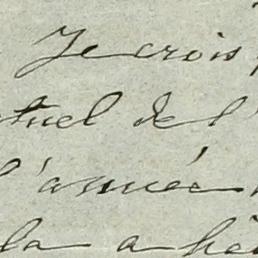 Je crois
tuel de l'
l'année
la a